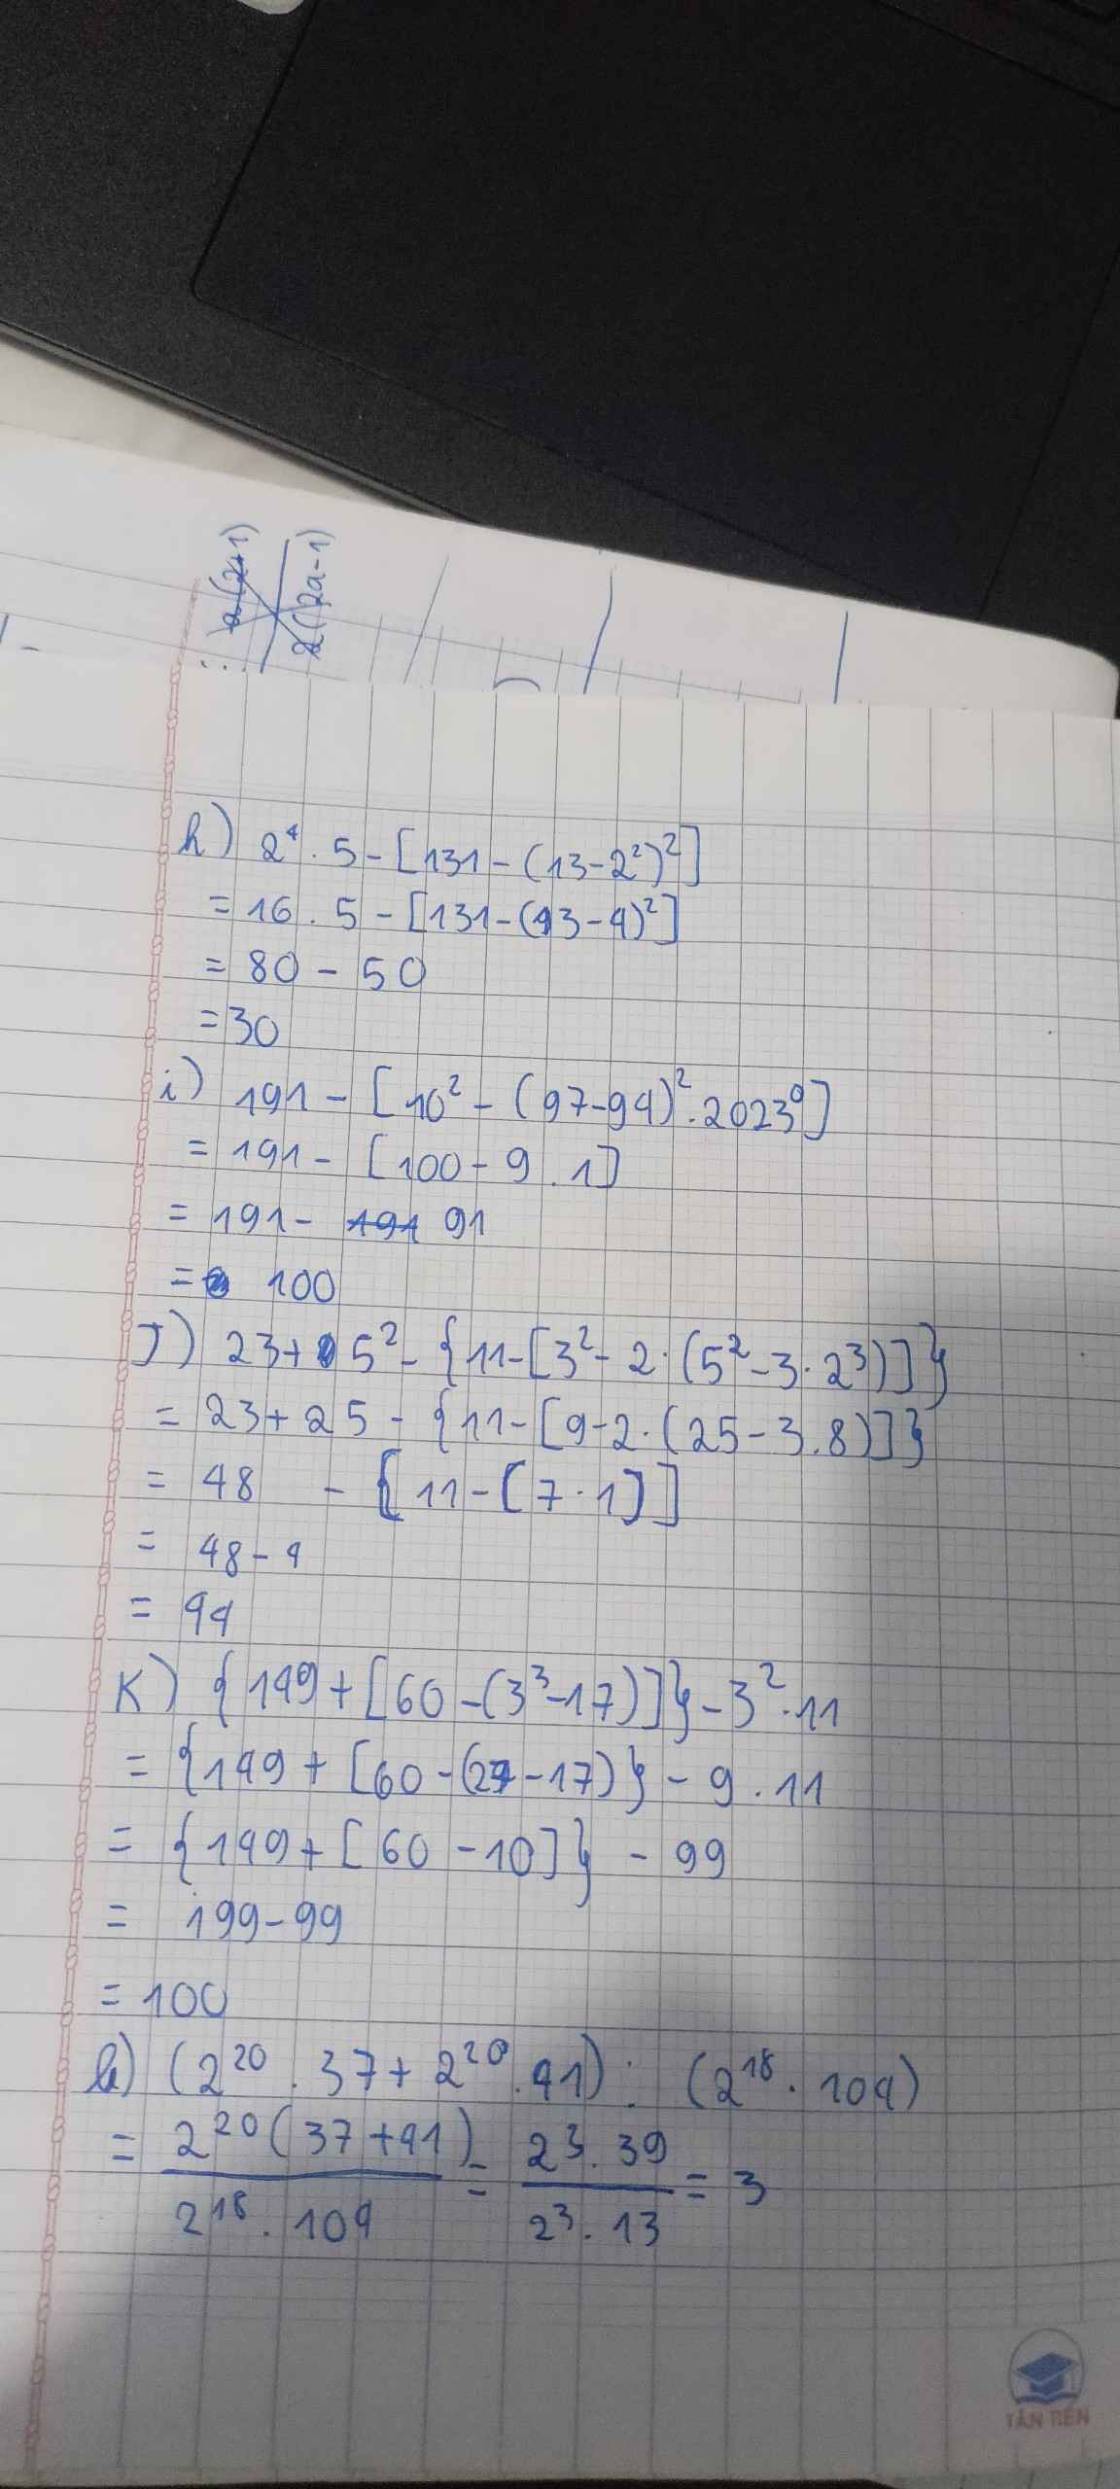 a(2+1)
2(2a-1)
h) 2⁴ . 5 - [131 - (13 - 2²)²]
= 16 . 5 - [131 - (13 - 4)²]
= 80 - 50
= 30
i) 191 - [10² - (97 - 94)² . 2023⁰]
= 191 - [100 - 9 . 1]
= 191 - 191 91
= 100
J) 23 + 5² - {11 - [3² - 2 . (5² - 3 . 2³)]}
= 23 + 25 - {11 - [9 - 2 . (25 - 3 . 8)]}
= 48 - [11 - [7 . 1]]
= 48 - 4
= 44
K) {149 + [60 - (3³ - 17)]} - 3² . 11
= {149 + [60 - (27 - 17)} - 9 . 11
= {149 + [60 - 10]} - 99
= 199 - 99
= 100
l) (2²⁰ . 37 + 2²⁰ . 41) : (2¹⁸ . 104)
= 2²⁰(37 + 41) / 2¹⁸ . 104 = 2³ . 39 / 2³ . 13 = 3
TÂN TIẾN